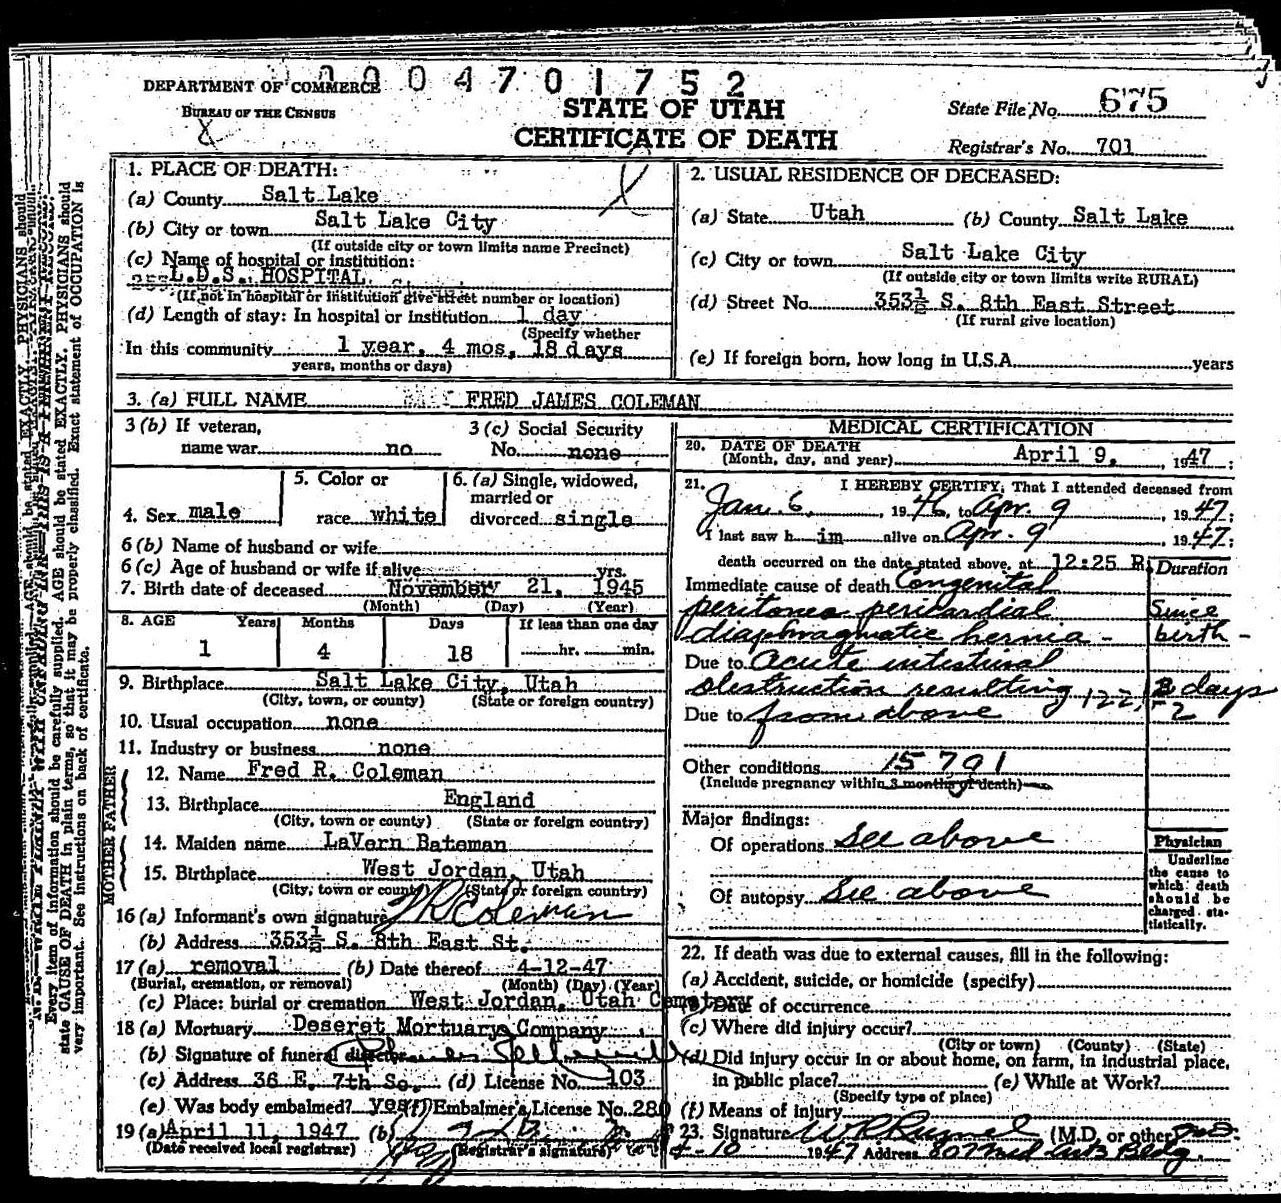 0004701752
DEPARTMENT OF COMMERCE
BUREAU OF THE CENSUS
STATE OF UTAH
CERTIFICATE OF DEATH
State File No. 675
Registrar's No. 701
1. PLACE OF DEATH:
(a) County Salt Lake
(b) City or town Salt Lake City
(If outside city or town limits name Precinct)
(c) Name of hospital or institution:
L.D.S. HOSPITAL
(If not in hospital or institution give street number or location)
(d) Length of stay: In hospital or institution 1 day
(Specify whether
In this community 1 year, 4 mos, 18 days
years, months or days)
2. USUAL RESIDENCE OF DECEASED:
(a) State Utah (b) County Salt Lake
(c) City or town Salt Lake City
(If outside city or town limits write RURAL)
(d) Street No. 353½ S. 8th East Street
(If rural give location)
(e) If foreign born, how long in U.S.A. years
3. (a) FULL NAME FRED JAMES COLEMAN
3 (b) If veteran,
name war no
3 (c) Social Security
No. none
4. Sex male
5. Color or
race white
6. (a) Single, widowed,
married or
divorced single
6 (b) Name of husband or wife
6 (c) Age of husband or wife if alive yrs.
7. Birth date of deceased November 21, 1945
(Month) (Day) (Year)
8. AGE Years Months Days If less than one day
1 4 18 hr. min.
9. Birthplace Salt Lake City, Utah
(City, town, or county) (State or foreign country)
10. Usual occupation none
11. Industry or business none
FATHER
12. Name Fred R. Coleman
13. Birthplace England
(City, town or county) (State or foreign country)
MOTHER
14. Maiden name LaVern Bateman
15. Birthplace West Jordan, Utah
(City, town or county) (State or foreign country)
16 (a) Informant's own signature Coleman
(b) Address 353½ S. 8th East St.
17 (a) removal (b) Date thereof 4-12-47
(Burial, cremation, or removal) (Month) (Day) (Year)
(c) Place: burial or cremation West Jordan, Utah Cemetery
18 (a) Mortuary Deseret Mortuary Company
(b) Signature of funeral director
(c) Address 36 E. 7th So. (d) License No. 103
(e) Was body embalmed? yes (f) Embalmer's License No. 280
19 (a) April 11, 1947 (b)
(Date received local registrar) (Registrar's signature)
MEDICAL CERTIFICATION
20. DATE OF DEATH
(Month, day, and year) April 9, , 1947;
21. I HEREBY CERTIFY, That I attended deceased from
Jan. 6, , 1946, to Apr. 9 , 1947;
I last saw h im alive on Apr. 9 , 1947;
death occurred on the date stated above, at 12:25 P.
Duration
Immediate cause of death Congenital
peritoneo pericardial Since
diaphragmatic hernia - birth -
Due to acute intestinal
obstruction resulting 122 days
Due to from above 2
Other conditions 15791
(Include pregnancy within 3 months of death)
Major findings:
Of operations See above
Of autopsy See above
Physician
Underline
the cause to
which death
should be
charged sta-
tistically.
22. If death was due to external causes, fill in the following:
(a) Accident, suicide, or homicide (specify)
(b) Date of occurrence
(c) Where did injury occur?
(City or town) (County) (State)
(d) Did injury occur in or about home, on farm, in industrial place,
in public place? (e) While at Work?
(Specify type of place)
(f) Means of injury
23. Signature (M.D. or other)
4-10 1947 Address Bldg.
Every item of information should be carefully supplied. AGE should be stated EXACTLY. PHYSICIANS should
state CAUSE OF DEATH in plain terms, so that it may be properly classified. Exact statement of OCCUPATION is
very important. See instructions on back of certificate.